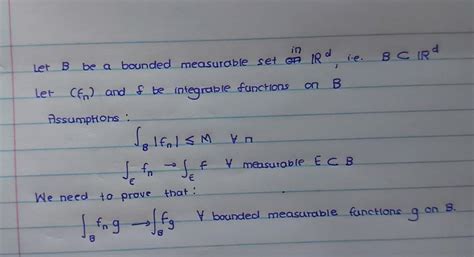 Let B be a bounded measurable set in ℝᵈ, i.e. B ⊂ ℝᵈ
Let (fₙ) and f be integrable functions on B
Assumptions :
∫_B |fₙ| ≤ M ∀ n
∫_E fₙ → ∫_E f ∀ measurable E ⊂ B
We need to prove that :
∫_B fₙ g → ∫_B fg ∀ bounded measurable functions g on B.